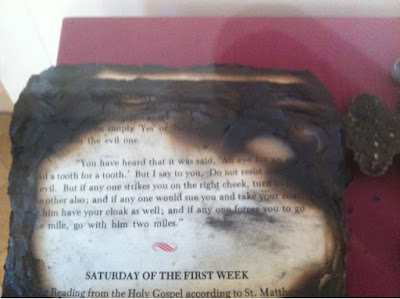 simply 'Yes' or
the evil one.
"You have heard that it was said, 'An eye
and a tooth for a tooth.' But I say to you, Do not resist
evil. But if any one strikes you on the right cheek, turn
other also; and if any one would sue you and take your
him have your cloak as well; and if any one forces you to go
mile, go with him two miles."
SATURDAY OF THE FIRST WEEK
Reading from the Holy Gospel according to St.